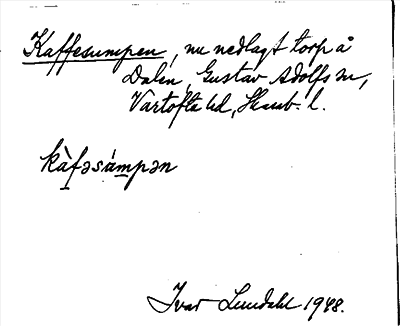 Kaffesumpen, nu nedlagt torp å
Dalen, Gustav Adolfs sn,
Vartofta hd, Skarab. l.
kàfəsámpən
Ivar Lundahl 1948.